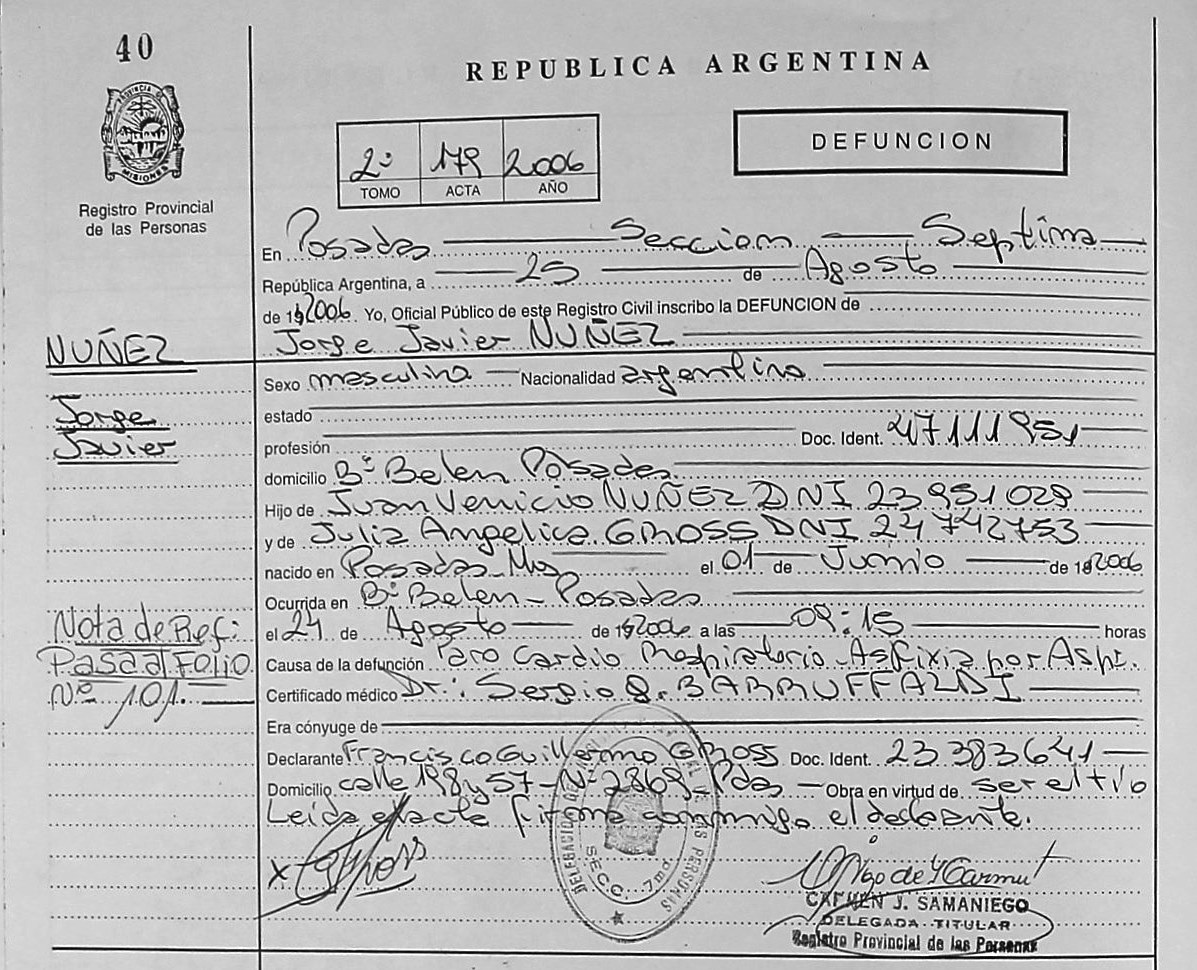 40
REPUBLICA ARGENTINA
PROVINCIA DE MISIONES
Registro Provincial
de las Personas
2º 179 2006
TOMO ACTA AÑO
DEFUNCION
En Posadas Seccion Septima
República Argentina, a 25 de Agosto
de 19 2006 Yo, Oficial Público de este Registro Civil inscribo la DEFUNCION de
Jorge Javier NUÑEZ
NUÑEZ
Jorge
Javier
Sexo masculino Nacionalidad argentino
estado
profesión Doc. Ident. 47111951
domicilio Bº Belen Posadas
Hijo de Juan Venicio NUÑEZ DNI 23951029
y de Julia Angelica GROSS DNI 24742753
nacido en Posadas Mnes el 01 de Junio de 19 2006
Ocurrida en Bº Belen - Posadas
el 24 de Agosto de 19 2006 a las 09:15 horas
Causa de la defunción Paro Cardio Respiratorio - Asfixia por Aspi.
Certificado médico Dr.: Sergio BARRUFFALDI
Nota de Ref:
Pasa al Folio
Nº 101.
Era cónyuge de
Declarante Francisco Guillermo GROSS Doc. Ident. 23383641
Domicilio calle 198 y 57 - Nº 2869 - Pdas Obra en virtud de ser el tio
Leida el acta firma conmigo el declarante.
SECC. 7ma
CARMEN J. SAMANIEGO
DELEGADA TITULAR
Registro Provincial de las Personas